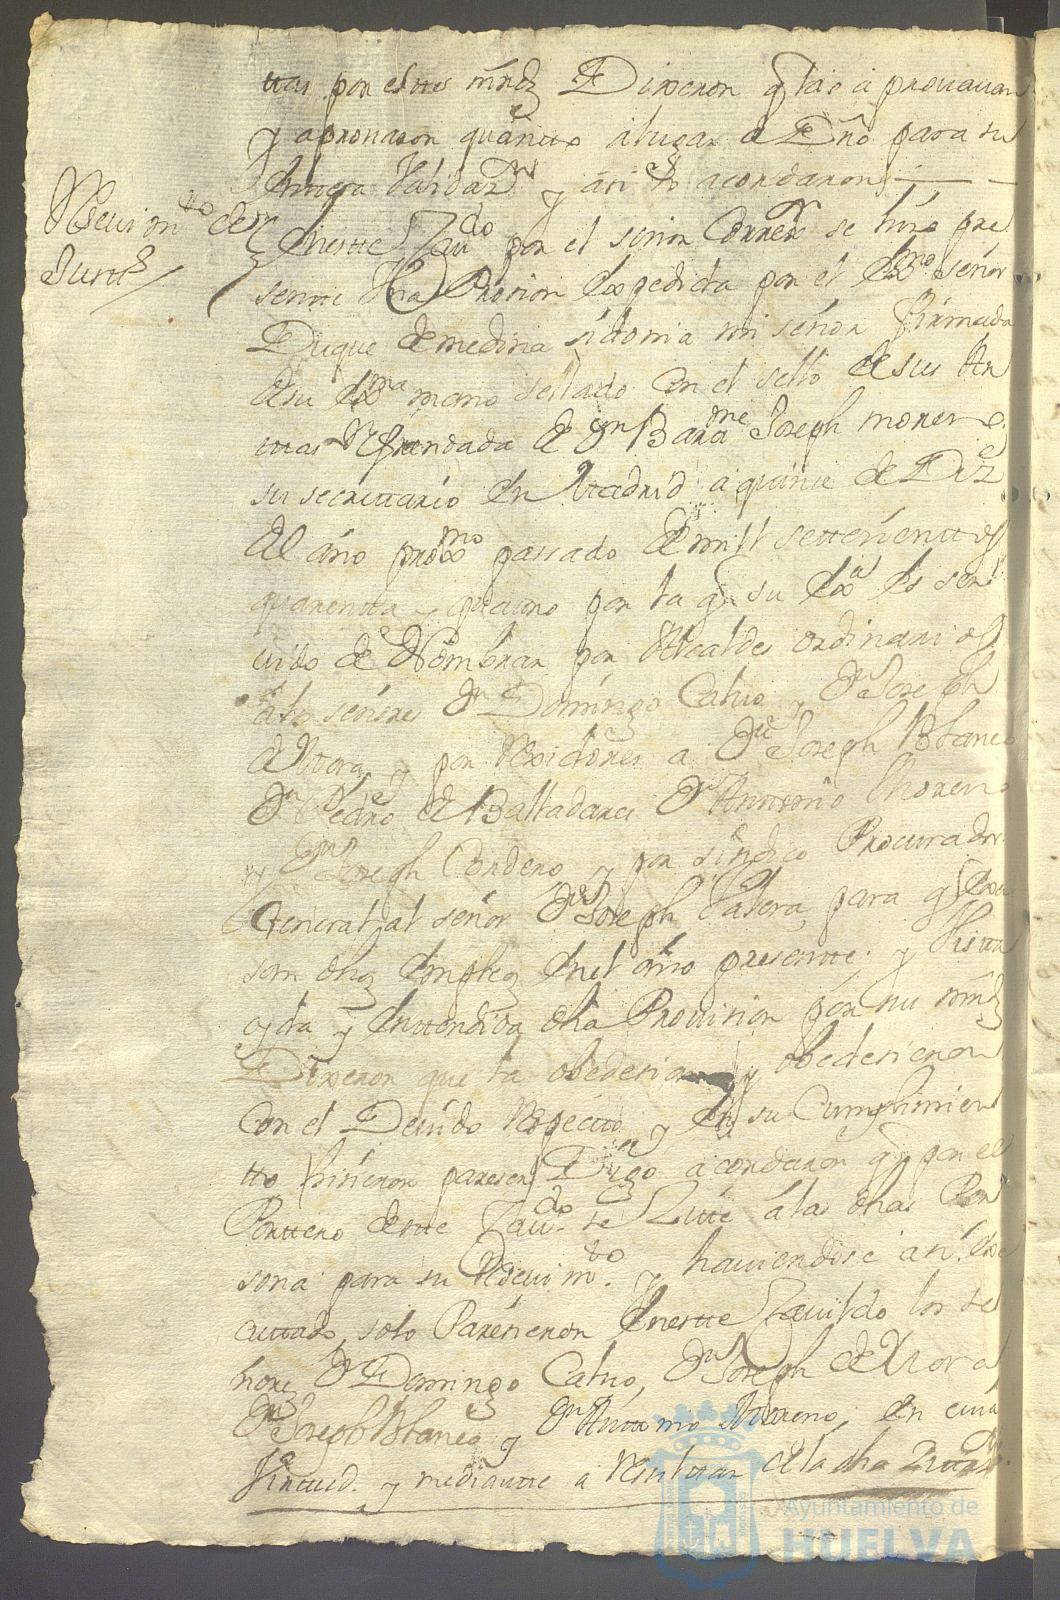 ttas por estres mrds Dixeron q las aprovavan
y aprovaron quanto a lugar de Dro para su
Entera Validazn y asi lo acordaron
Recivimto de la
Justa
En este Cavdo por el señor Correxr se hizo pre
sente Una Provision Expedida por el Exmo señor
Duque de medina sidonia mi señor firmada
de su Exma mano sellado Con el sello de sus Ar
mas Refrendada de Dn Barme Joseph moreno
su secrettario En Madrid a quinze de Dize
del año proxmo passado de mill settezienttos
quarentta y quatro por la qe su Exa Es ser
vido de Nombrar por Alcaldes ordinarios
a los señores Dn Domingo Calvo y Dn Joseph
de Mora, y por Rexidores a Dn Joseph Blanco
Dn Pedro de Balladares Dn Anttonio Moreno
y Dn Joseph Cordero y por sindico Procurador
General al señor Dn Joseph para q
san dhos Empleos En el año presentte. y Vistta
oyda y Enttendida dha Provision por sus mrds
Dixeron que la obedesian y obedesieron
Con el Devido Respecto y En su Cumplimien
tto hisieron y acordaron qe por el
Porttero de este Cavdo se Zitte a las dhas Per
sona para su Recivimto. y haviendose asi Exe
cuttado, solo Paresieron En este Cavildo los se
ñores Dn Domingo Calvo, Dn Joseph de Mora
Dn Joseph Blanco y Dn Anttonio Moreno, En cuia
Virtud. y mediantte a Resulttar de la dha
Ayuntamiento de
HUELVA